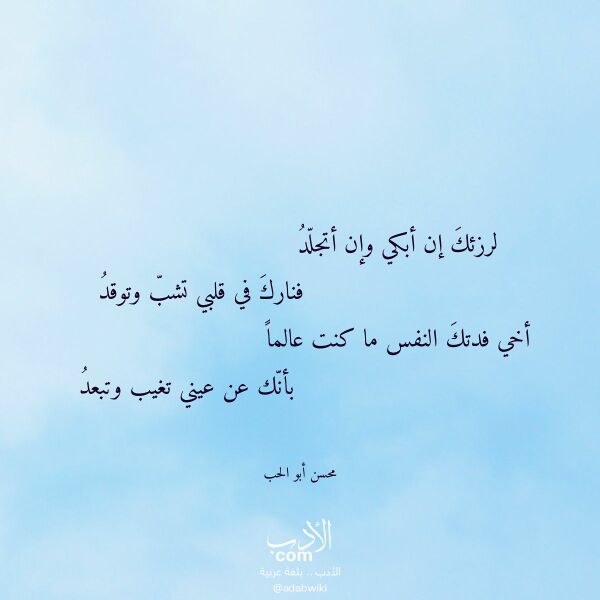 لرزئكَ إن أبكي وإن أتجلّدُ
فناركَ في قلبي تشبّ وتوقدُ
أخي فدتكَ النفس ما كنت عالماً
بأنّك عن عيني تغيب وتبعدُ
محسن أبو الحب
الأدب
.com
الأدب .. بلغة عربية
@adabwiki